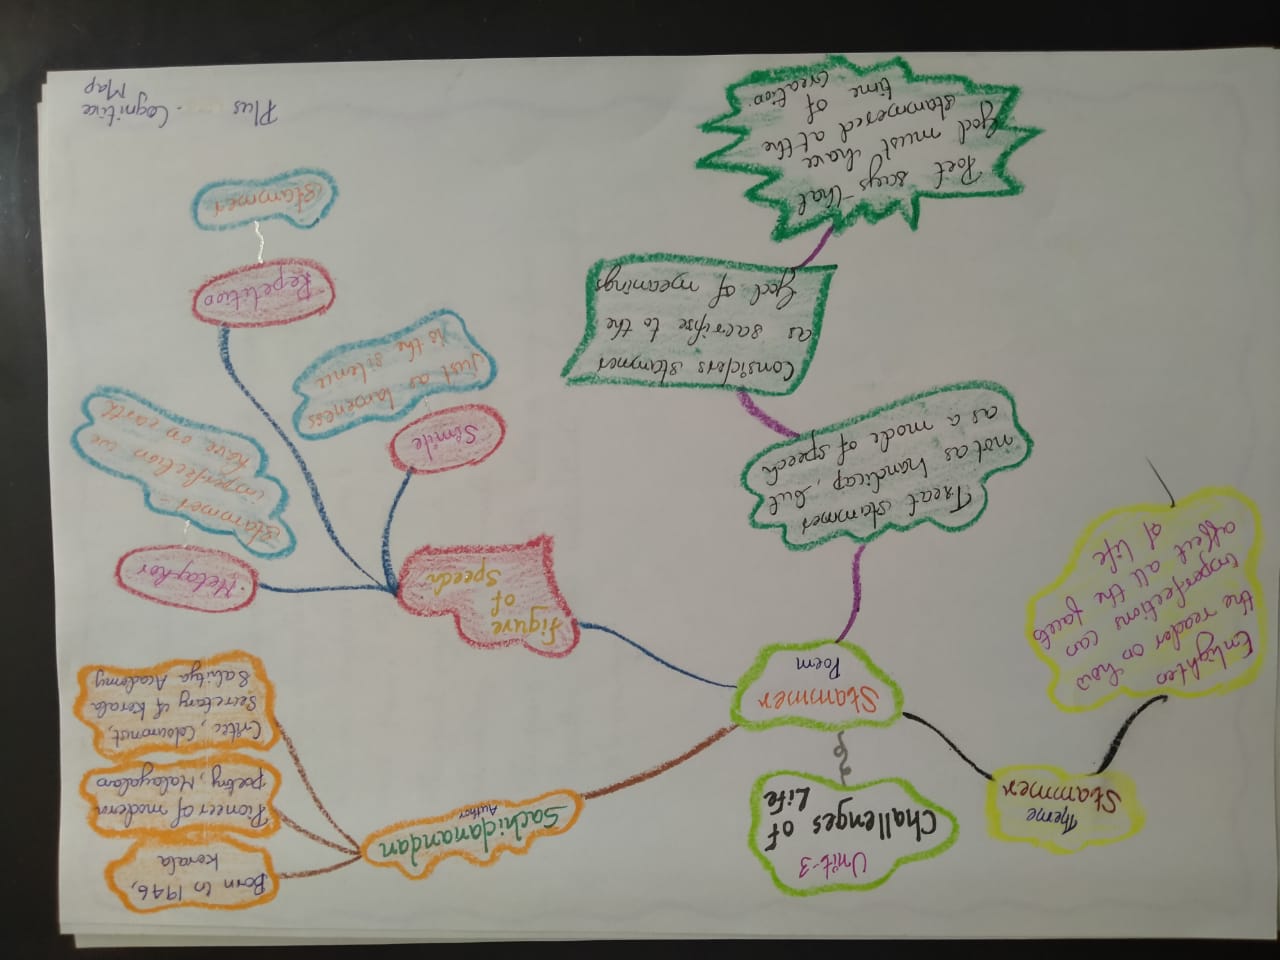 Unit-3
Challenges of
Life
Stammer
Poem
Theme
Stammer
Enlighten
the reader on how
imperfections can
affect all the facets
of life
Sachidanandan
Author
Born in 1946,
Kerala
Pioneer of modern
poetry, Malayalam
Critic, Coloumnist,
Secretary of Kerala
Sahitya Academy
figure
of
Speech
Metaphor
Stammer -
imperfection we
have on earth
Simile
Just as lameness
is the silence
Repetition
Stammer
Treat stammer
not as handicap, but
as a mode of speech
Considers stammer
as sacrifise to the
God of meanings
Poet says that
God must have
stammered at the
time of
creation.
Plus - Cognitive
Map